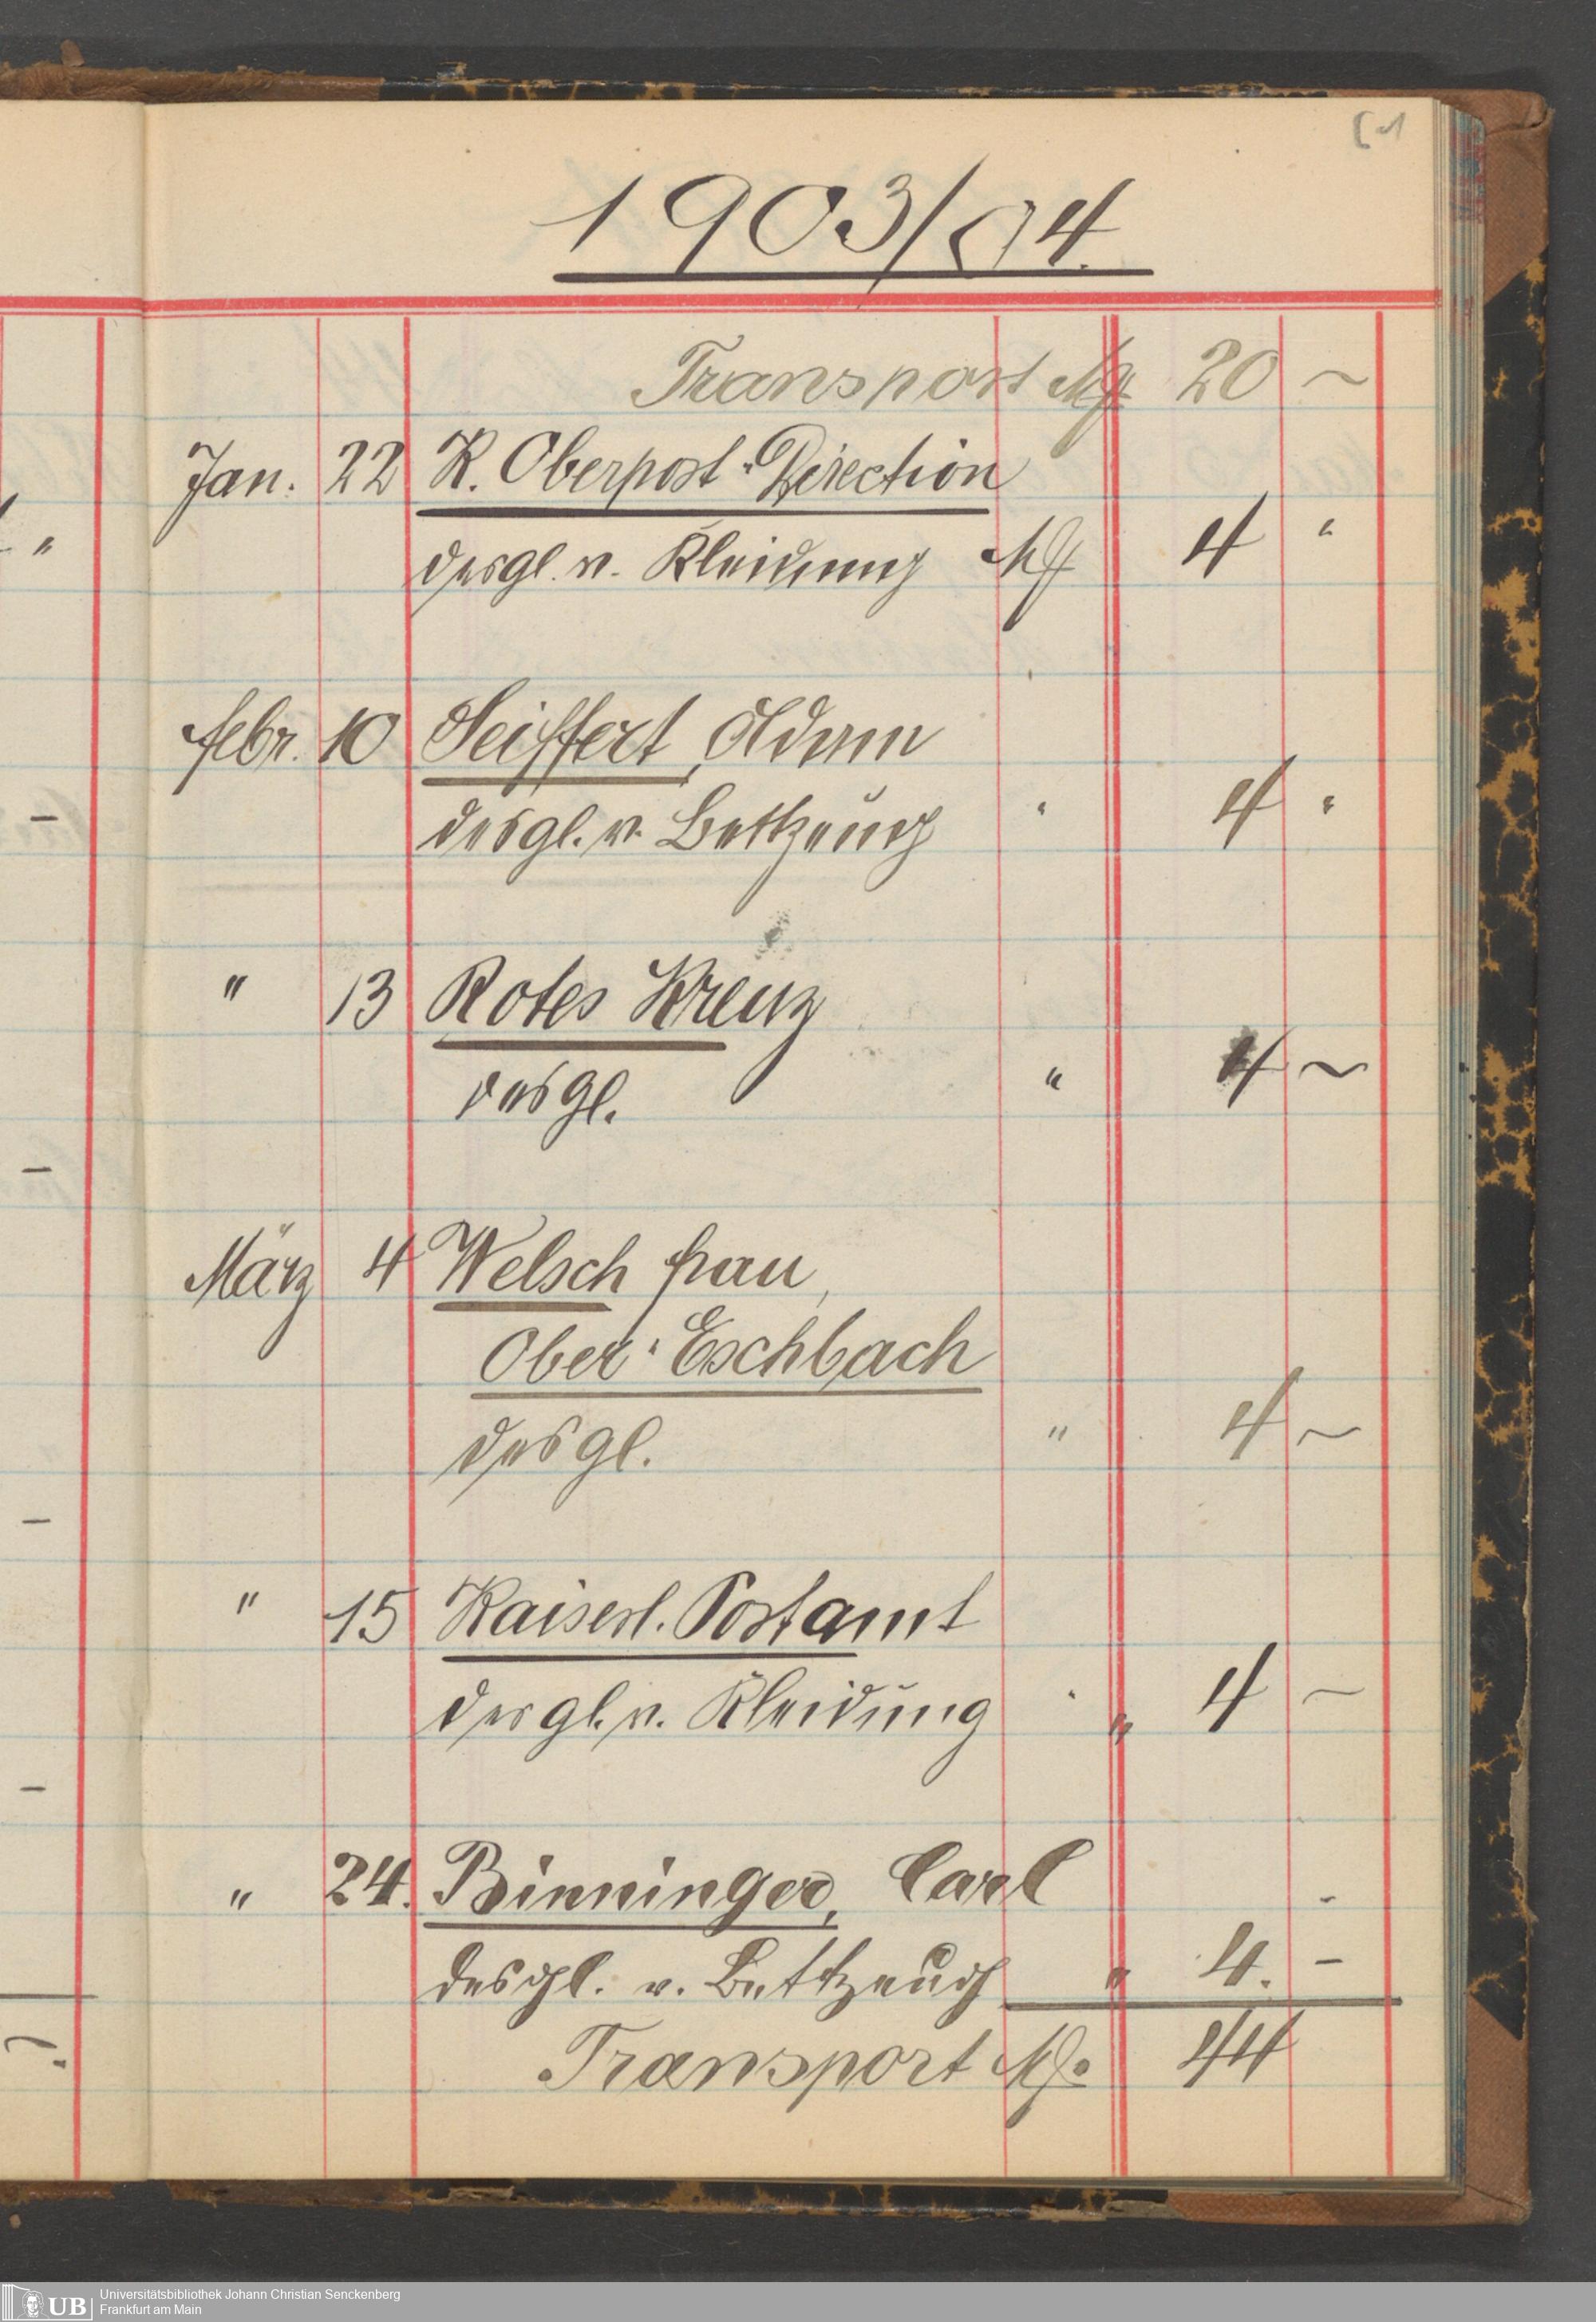 1903/04.
Transport M 20 ~
Jan. 22 K. Oberpost-Direction
desgl. v. Kleidung M 4 "
Febr. 10 Seiffert,
desgl. v. Bettzeug " 4 "
" 13 Rotes Kreuz
desgl. " 4 ~
März 4 Welsch Frau,
Ober-Eschbach
desgl. " 4 ~
" 15 Kaiserl. Postamt
desgl. v. Kleidung " 4 ~
" 24. Binninger, Carl -
desgl. v. Bettzeug " 4. -
Transport M. 44
UB Universitätsbibliothek Johann Christian Senckenberg
Frankfurt am Main